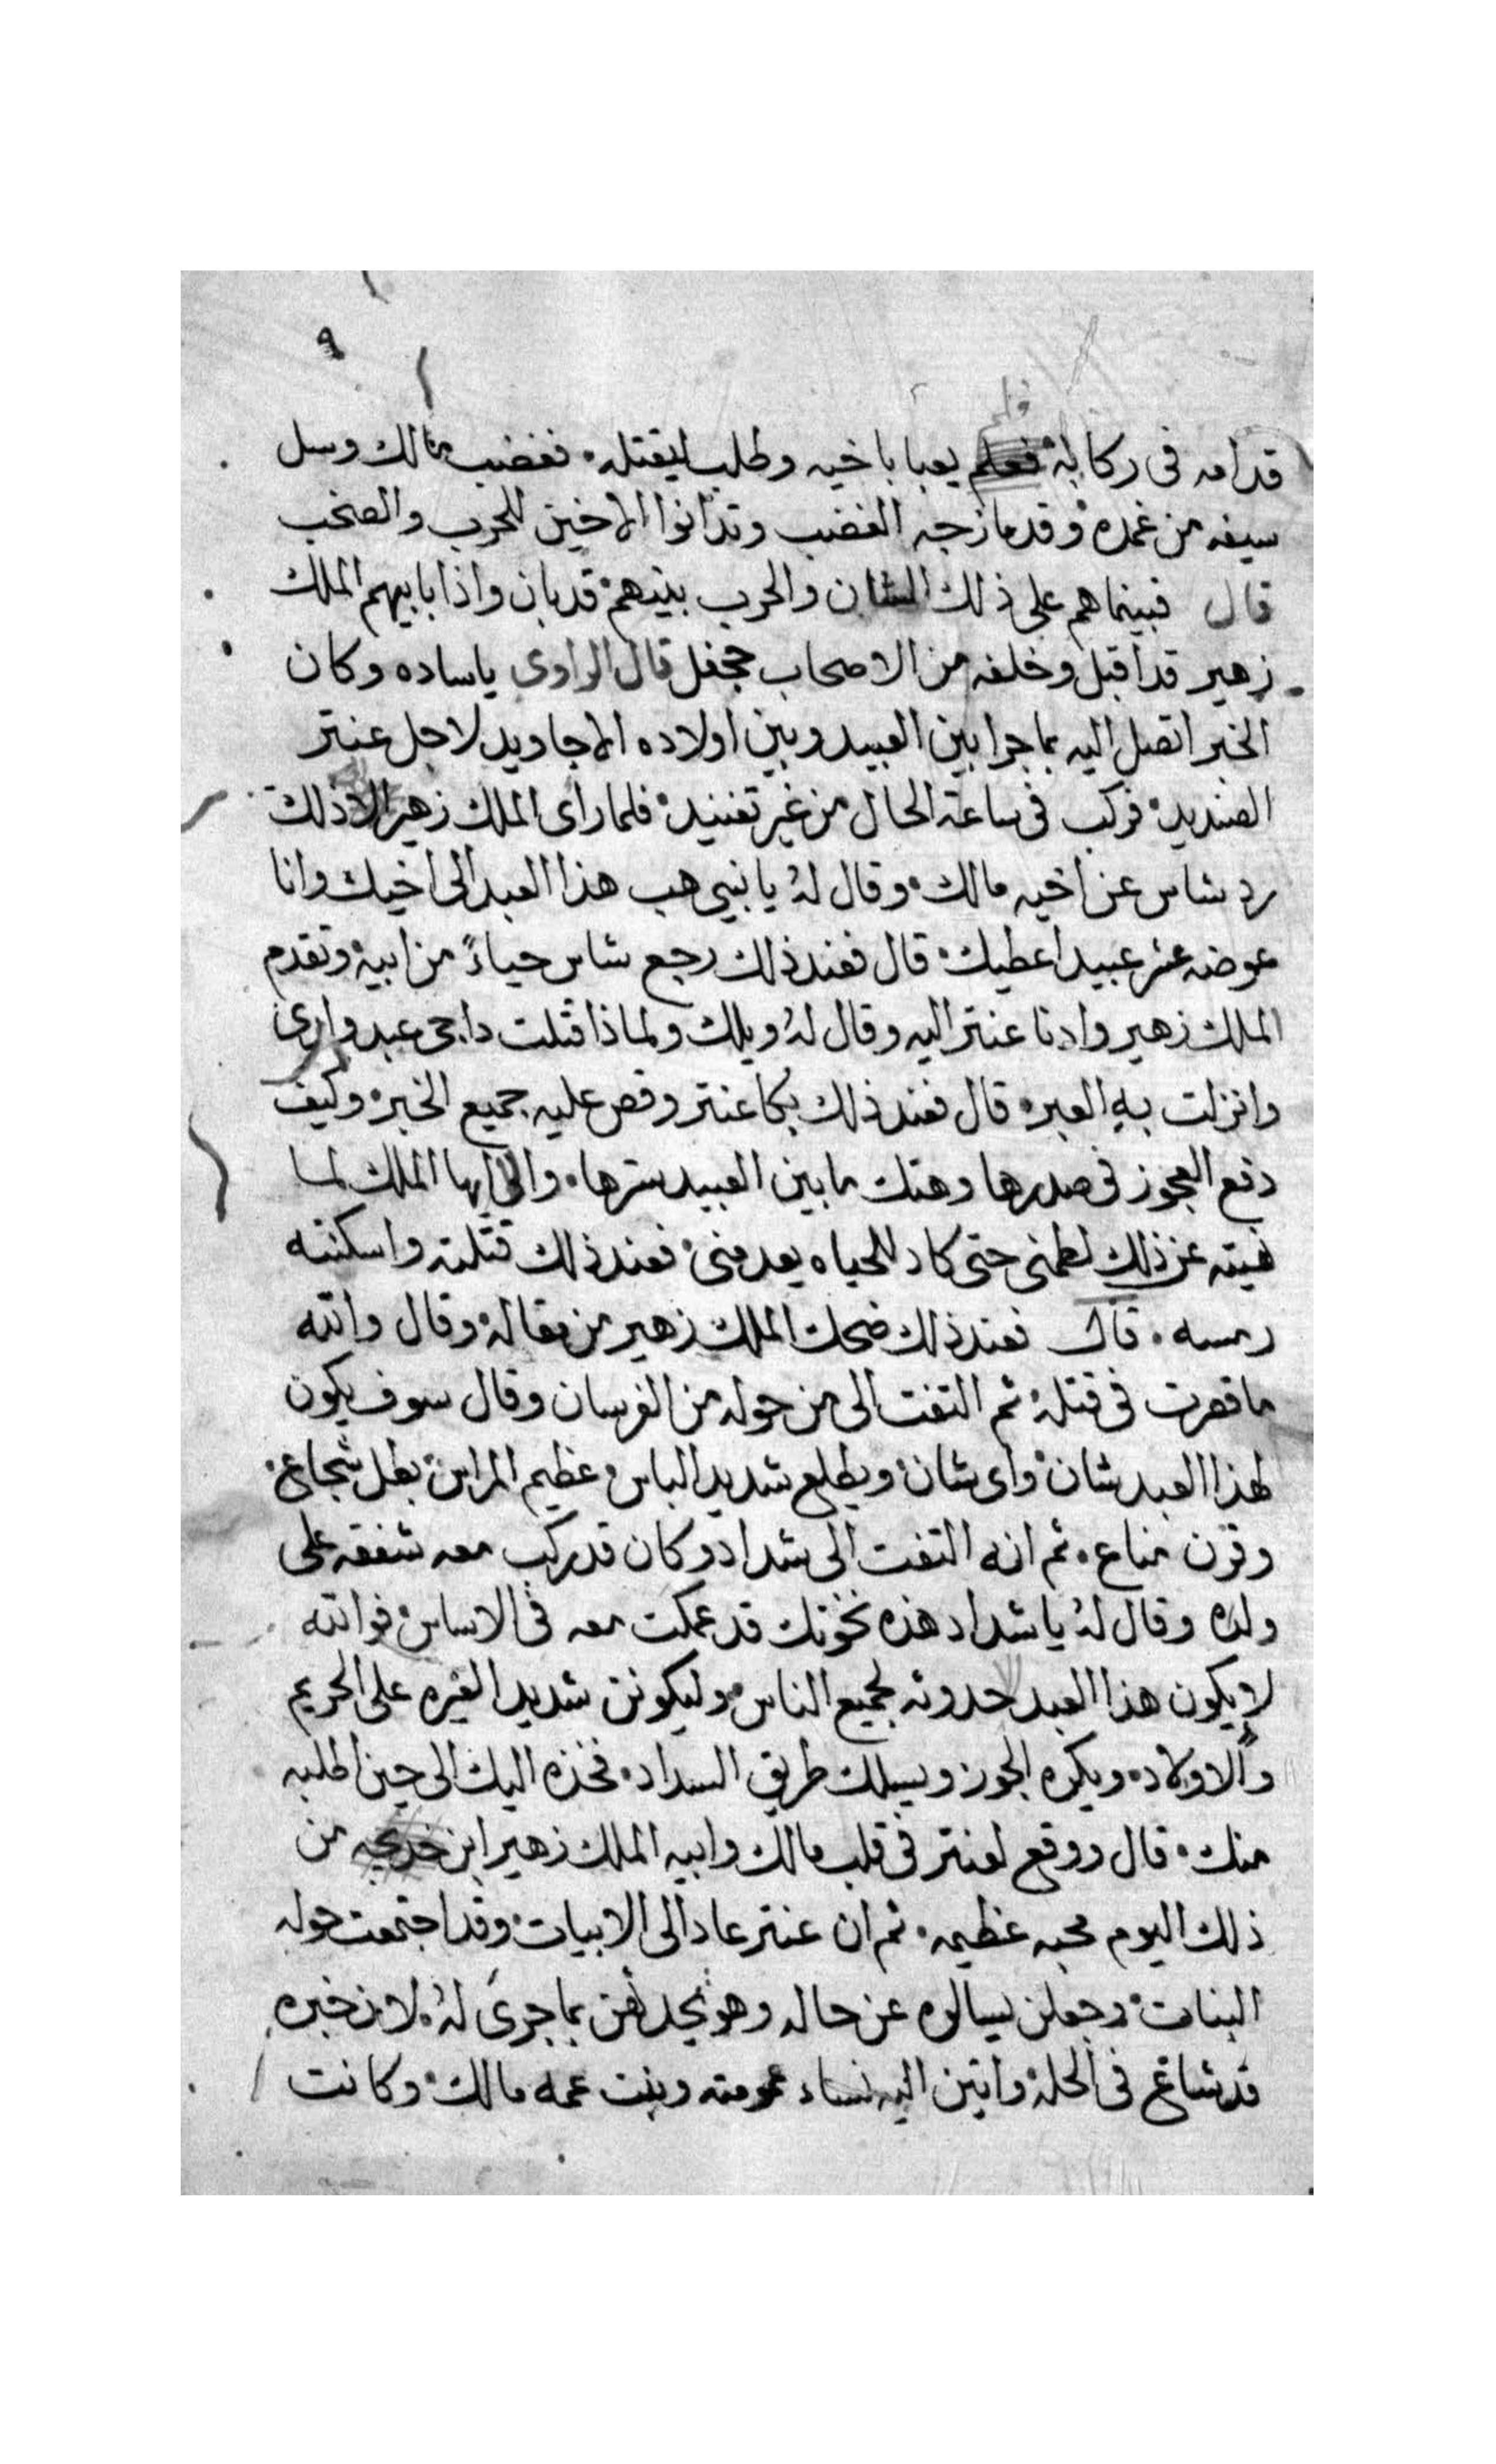 ٩
فلم
قدامه فى ركابه يعبا باخيه وطلب ليقتله فغضب مالك وسل
سيفه من غمده وقد مازجه الغضب وتدانوا الاخين للحرب والصخب
قال فبينماهم على ذلك الشان والحرب بينهم قد بان واذا بابيهم الملك
زهير قد اقبل وخلفه من الاصحاب جحفل قال الراوى ياساده وكان
الخبر اتصل اليه بما جرا بين العبيد وبين اولاده الاجاويد لاجل عنتر
الصنديد فركب فى ساعة الحال من غير تفنيد فلما راى الملك زهير الا ذلك
رد شاس عن اخيه مالك وقال له يا بنيى هب هذا العبد الى اخيك وانا
عوضه عشر عبيد اعطيك قال فعند ذلك رجع شاس حياءً من ابيه وتقدم
الملك زهير وادنا عنتر اليه وقال له ويلك ولماذا قتلت داجى عبد وارى
وانزلت به العبره قال فعند ذلك بكا عنتر وقص عليه جميع الخبر وكيف
دفع العجوز فى صدرها وهتك ما بين العبيد سترها وانى ايها الملك لما
نهيته عن ذلك لطمنى حتى كاد للحياه يعدمنى فعند ذلك قتلته واسكنته
رمسه قال فعند ذلك ضحك الملك زهير من مقاله وقال والله
ما قصرت فى قتله ثم التفت الى من حوله من الفرسان وقال سوف يكون
لهذا العبد شان واى شان ويطلع شديد الباس عظيم المراس بطل شجاع
وقرن مناع ثم انه التفت الى شداد وكان قد ركب معه شفقه على
ولده وقال له يا شداد هذه نخوتك قد عمكت معه فى الاساس فوالله
لا يكون هذا العبد حدوثه لجميع الناس وليكونن شديد الغيره على الحريم
والاولاد ويكره الجور ويسلك طريق السداد فخذه اليك الى حين اطلبه
منك قال ووقع لعنتر فى قلب مالك وابيه الملك زهير ابن خديجه من
ذلك اليوم محبه عظيمه ثم ان عنتر عاد الى الابيات وقد اجتمعت حوله
البنات وجعلن يسالوه عن حاله وهو يحدثهن بما جرى له لان خبره
قد شاع فى الحله واتين اليه نساء عمومته وبنت عمه مالك وكانت